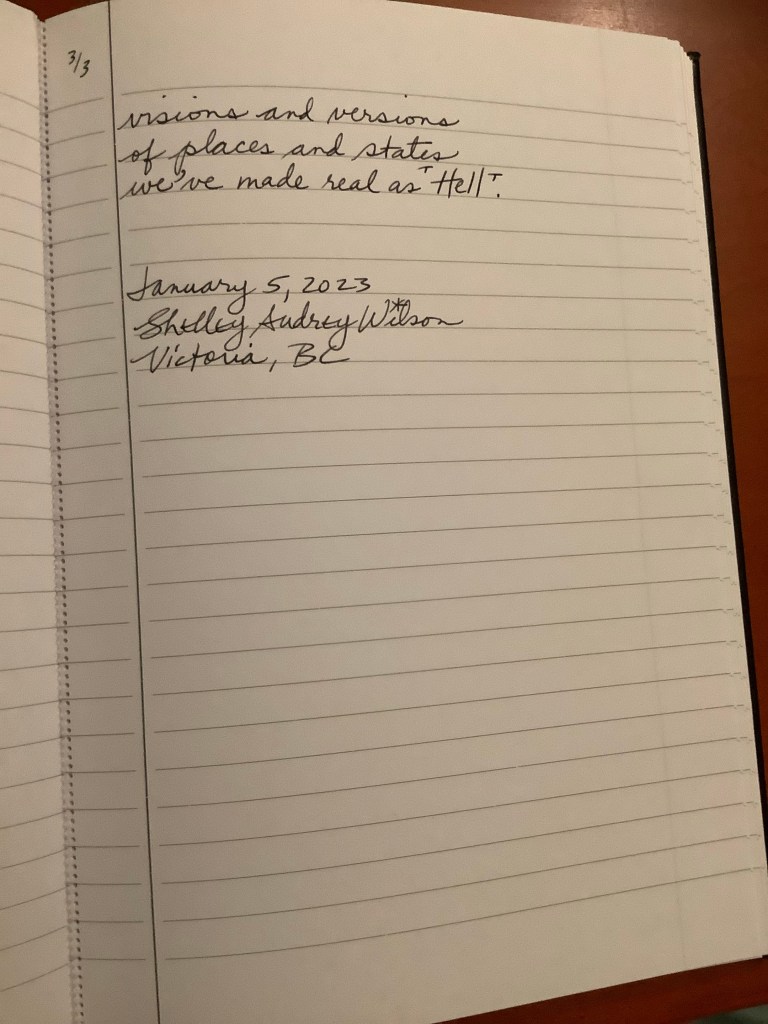 3/3
visions and versions
of places and states
we've made real as "Hell".
January 5, 2023
Shelley Audrey Wilson
Victoria, BC